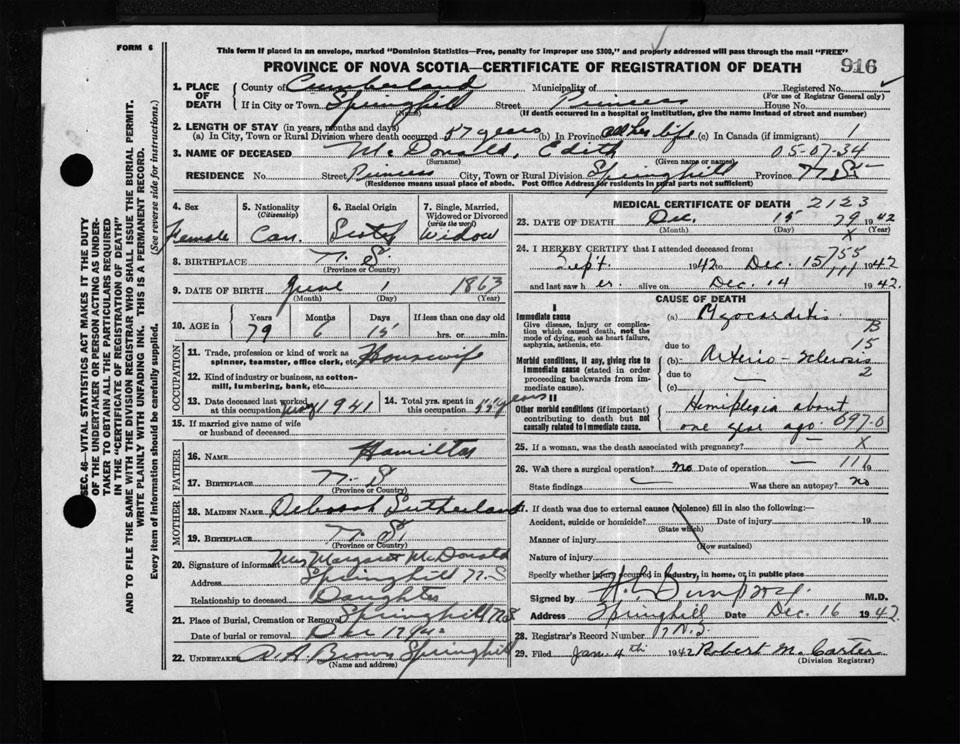 FORM 6
This form if placed in an envelope, marked "Dominion Statistics—Free, penalty for improper use $300," and properly addressed will pass through the mail "FREE"
PROVINCE OF NOVA SCOTIA—CERTIFICATE OF REGISTRATION OF DEATH
916
SEC. 46—VITAL STATISTICS ACT MAKES IT THE DUTY
OF THE UNDERTAKER OR PERSON ACTING AS UNDER-
TAKER TO OBTAIN ALL THE PARTICULARS REQUIRED
IN THE "CERTIFICATE OF REGISTRATION OF DEATH"
AND TO FILE THE SAME WITH THE DIVISION REGISTRAR WHO SHALL ISSUE THE BURIAL PERMIT.
WRITE PLAINLY WITH UNFADING INK. THIS IS A PERMANENT RECORD.
Every item of information should be carefully supplied. (See reverse side for instructions.)
1. PLACE OF DEATH
County of Cumberland Municipality of Registered No.
(For use of Registrar General only)
If in City or Town Springhill Street Princess House No.
(Name) (If death occurred in a hospital or institution, give the name instead of street and number)
2. LENGTH OF STAY (in years, months and days)
(a) In City, Town or Rural Division where death occurred 57 years (b) In Province all her life (c) In Canada (if immigrant)
3. NAME OF DECEASED McDonald, Edith 05-07-34
(Surname) (Given name or names)
RESIDENCE No. Street Princess City, Town or Rural Division Springhill Province N.S.
(Residence means usual place of abode. Post Office Address for residents in rural parts not sufficient)
4. Sex Female
5. Nationality (Citizenship) Can.
6. Racial Origin
7. Single, Married, Widowed or Divorced (write the word) Widow
8. BIRTHPLACE N. S.
(Province or Country)
9. DATE OF BIRTH June 1 1863
(Month) (Day) (Year)
10. AGE in Years Months Days If less than one day old
79 6 15 hrs. or min.
OCCUPATION
11. Trade, profession or kind of work as spinner, teamster, office clerk, etc. Housewife
12. Kind of industry or business, as cotton-mill, lumbering, bank, etc.
13. Date deceased last worked at this occupation 1941
14. Total yrs. spent in this occupation years
15. If married give name of wife or husband of deceased
FATHER
16. NAME Hamilton
17. BIRTHPLACE N. S.
(Province or Country)
MOTHER
18. MAIDEN NAME Deborah Sutherland
19. BIRTHPLACE N. S.
(Province or Country)
20. Signature of informant Mrs Margaret McDonald
Address Springhill N.S
Relationship to deceased Daughter
21. Place of Burial, Cremation or Removal Springhill N.S
Date of burial or removal
22. UNDERTAKER A. A. Brown Springhill
(Name and address)
MEDICAL CERTIFICATE OF DEATH 2123
23. DATE OF DEATH Dec. 15 79 1942
(Month) (Day) X (Year)
24. I HEREBY CERTIFY that I attended deceased from: 755
Sept. 1942 to Dec. 15 111 1942
and last saw her alive on Dec. 14 1942.
CAUSE OF DEATH
I
Immediate cause
Give disease, injury or complication which caused death, not the mode of dying, such as heart failure, asphyxia, asthenia, etc.
(a) Myocarditis B
due to 15
Morbid conditions, if any, giving rise to immediate cause (stated in order proceeding backwards from immediate cause).
(b) Arterio-sclerosis
due to — 2
(c)
II
Other morbid conditions (if important) contributing to death but not causally related to immediate cause.
Hemiplegia about
one year ago. 097-0
25. If a woman, was the death associated with pregnancy? X
26. Was there a surgical operation? no Date of operation — 111 19
State findings — Was there an autopsy? no
27. If death was due to external causes (violence) fill in also the following:
Accident, suicide or homicide? Date of injury 19
(State which)
Manner of injury
(How sustained)
Nature of injury
Specify whether injury occurred in industry, in home, or in public place
Signed by M.D.
Address Springhill Date Dec. 16 1942.
28. Registrar's Record Number
29. Filed Jan. 4th 1942 Robert M. Carter
(Division Registrar)